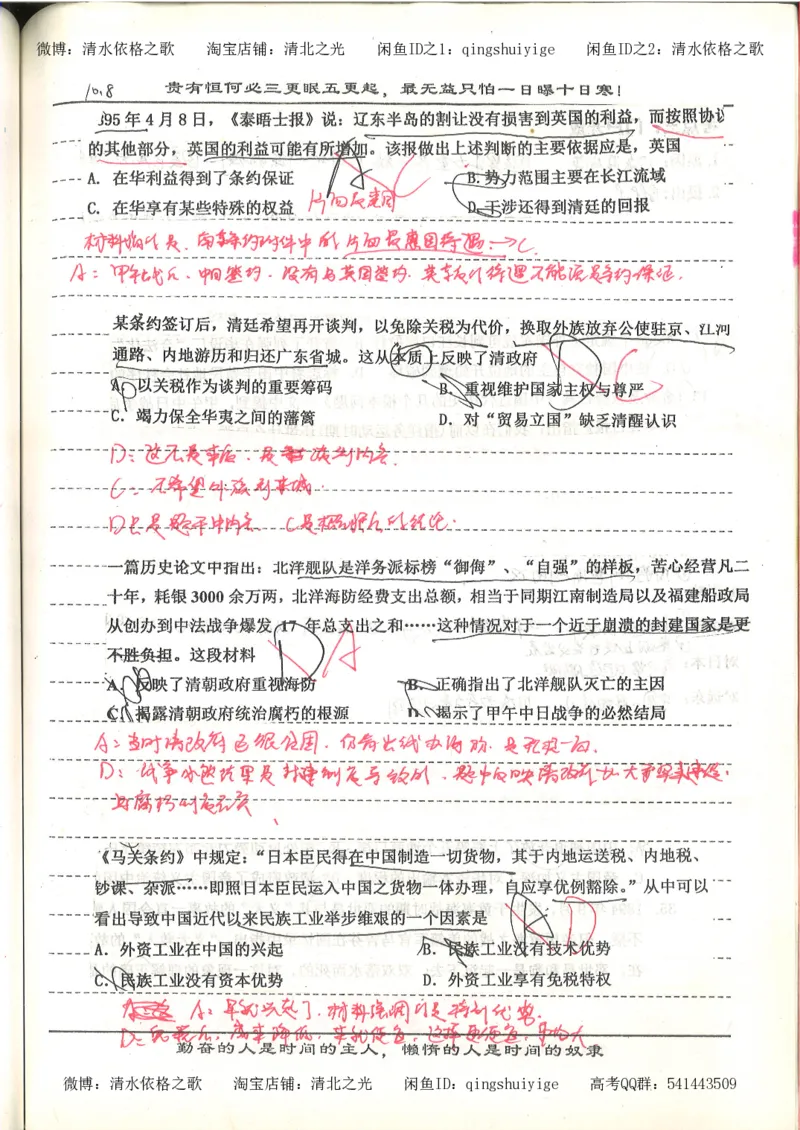 微博：清水依格之歌 淘宝店铺：清北之光 闲鱼ID之1：qingshuiyige 闲鱼ID之2：清水依格之歌
10.8 贵有恒何必三更眠五更起，最无益只怕一日曝十日寒！
95年4月8日，《泰晤士报》说：辽东半岛的割让没有损害到英国的利益，而按照协议
的其他部分，英国的利益可能有所增加。该报做出上述判断的主要依据应是，英国
A. 在华利益得到了条约保证 B. 势力范围主要在长江流域
C. 在华享有某些特殊的权益 片面最惠国 D. 干涉还得到清廷的回报
C
材料指的是，南京条约附件中的片面最惠国待遇→C.
A：甲午战后，中日签约，没有与英国签约，英享受待遇不能说是条约保证.
某条约签订后，清廷希望再开谈判，以免除关税为代价，换取外族放弃公使驻京、江河
通路、内地游历和归还广东省城。这从本质上反映了清政府
D C
A. 以关税作为谈判的重要筹码 B. 重视维护国家主权与尊严
C. 竭力保全华夷之间的藩篱 D. 对“贸易立国”缺乏清醒认识
C：不希望外族到京城.
D只是题干中内容 C是
一篇历史论文中指出：北洋舰队是洋务派标榜“御侮”、“自强”的样板，苦心经营凡二
十年，耗银3000余万两，北洋海防经费支出总额，相当于同期江南制造局以及福建船政局
从创办到中法战争爆发17年总支出之和……这种情况对于一个近于崩溃的封建国家是更
不胜负担。这段材料
D A
A. 反映了清朝政府重视海防 B. 正确指出了北洋舰队灭亡的主因
C. 揭露清朝政府统治腐朽的根源 D. 揭示了甲午中日战争的必然结局
A：当时清政府已很贫困，仍拿出钱办海防，是重视一面.
D：战争必然结果是封建制度与
《马关条约》中规定：“日本臣民得在中国制造一切货物，其于内地运送税、内地税、
钞课、杂派……即照日本臣民运入中国之货物一体办理，自应享优例豁除。”从中可以
看出导致中国近代以来民族工业举步维艰的一个因素是
D
A. 外资工业在中国的兴起 B. 民族工业没有技术优势
C. 民族工业没有资本优势 D. 外资工业享有免税特权
A：早就兴起了，材料强调的是特别优惠.
D：免税后，成本降低，本就便宜，这样更便宜，
勤奋的人是时间的主人，懒惰的人是时间的奴隶
微博：清水依格之歌 淘宝店铺：清北之光 闲鱼ID：qingshuiyige 高考QQ群：541443509